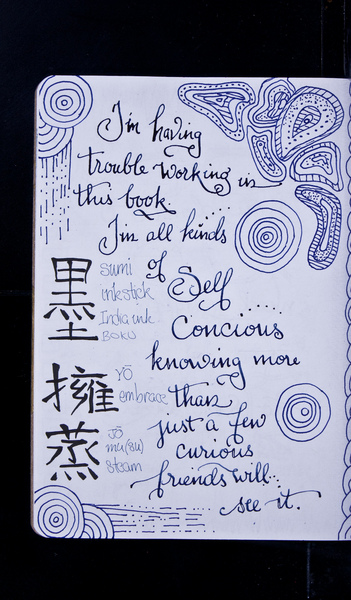 I'm having
trouble working in
this book.
I'm all kinds
of Self
Concious
knowing more
than
just a few
curious
friends will
see it.
墨
sumi
inkstick
India ink
BOKU
擁
YŌ
embrace
蒸
JŌ
mu(su)
steam